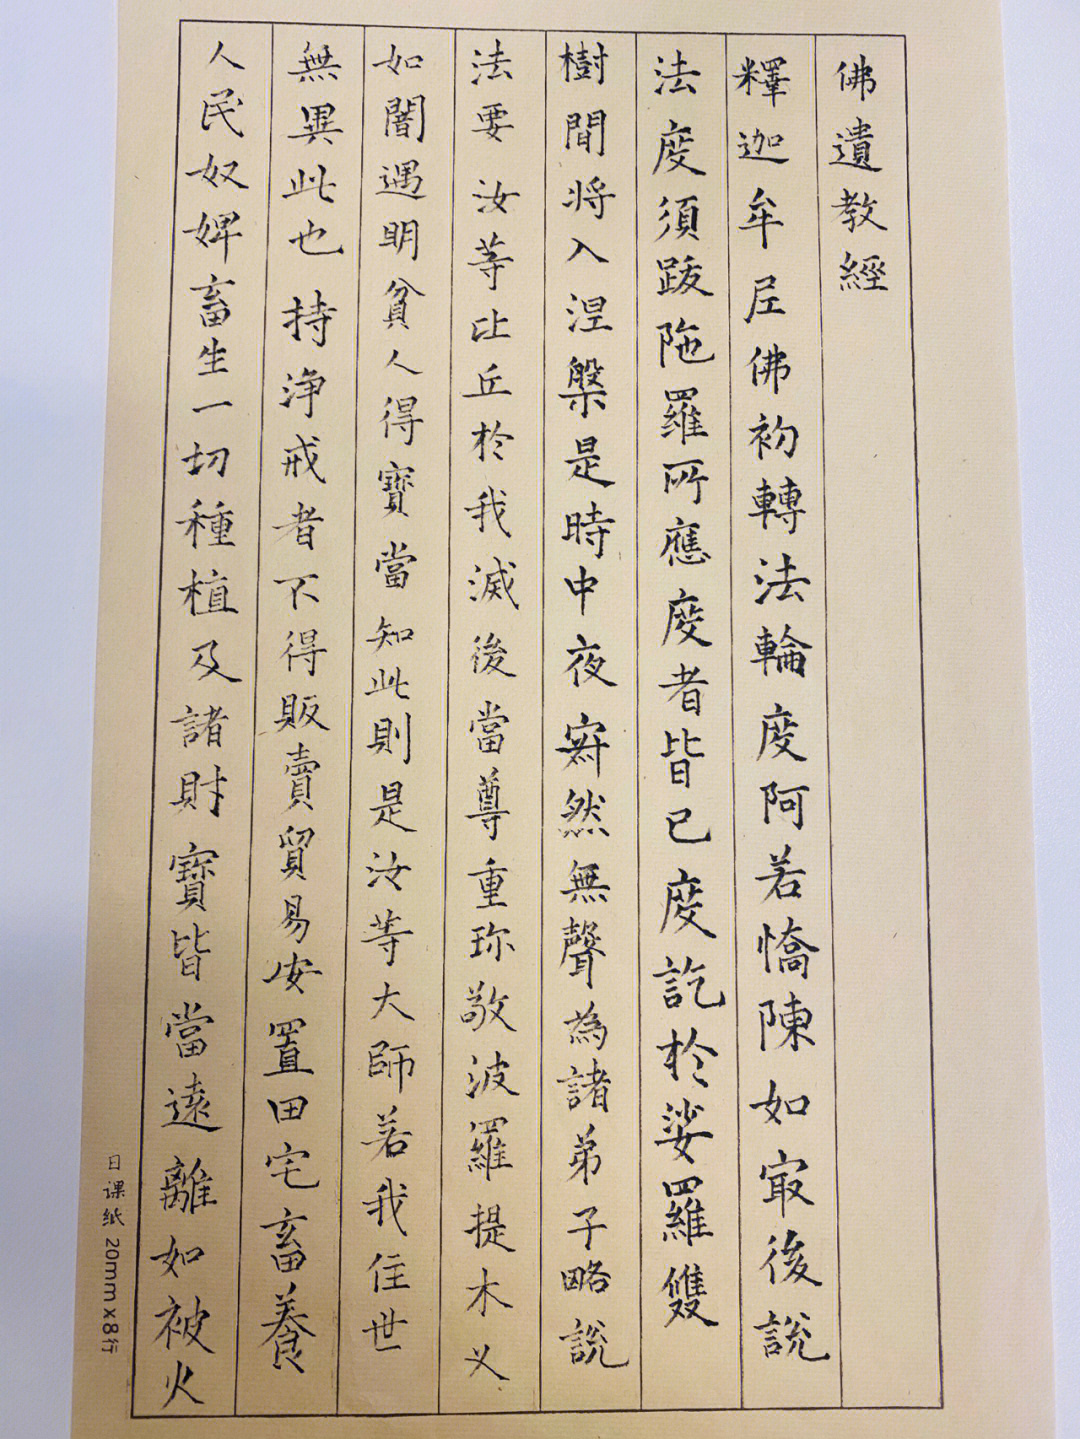 佛遺教經
釋迦牟尼佛初轉法輪度阿若憍陳如寂後說
法度須跋陁羅所應度者皆已度訖於娑羅雙
樹間將入涅槃是時中夜寂然無聲為諸弟子略說
法要 汝等比丘於我滅後當尊重珎敬波羅提木叉
如闇遇明貧人得寶當知此則是汝等大師若我住世
無異此也 持淨戒者不得販賣貿易安置田宅畜養
人民奴婢畜生一切種植及諸財寶皆當遠離如被火
日课纸 20mm x 8行